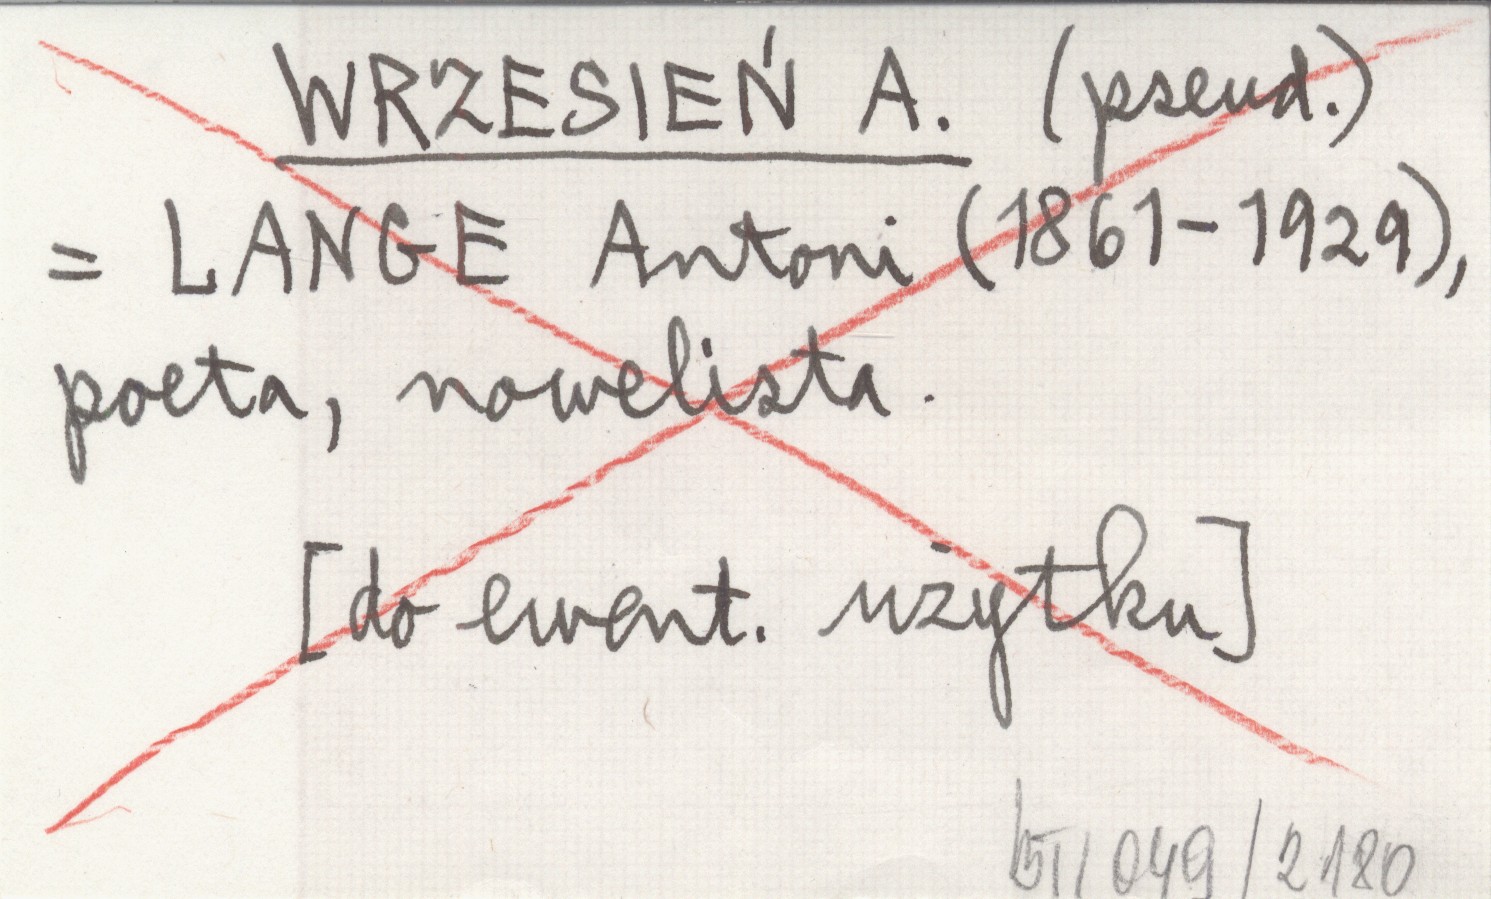 WRZESIEŃ A. (pseud.)
= LANGE Antoni (1861-1929),
poeta, nowelista.
[do ewent. użytku]
/049/2180